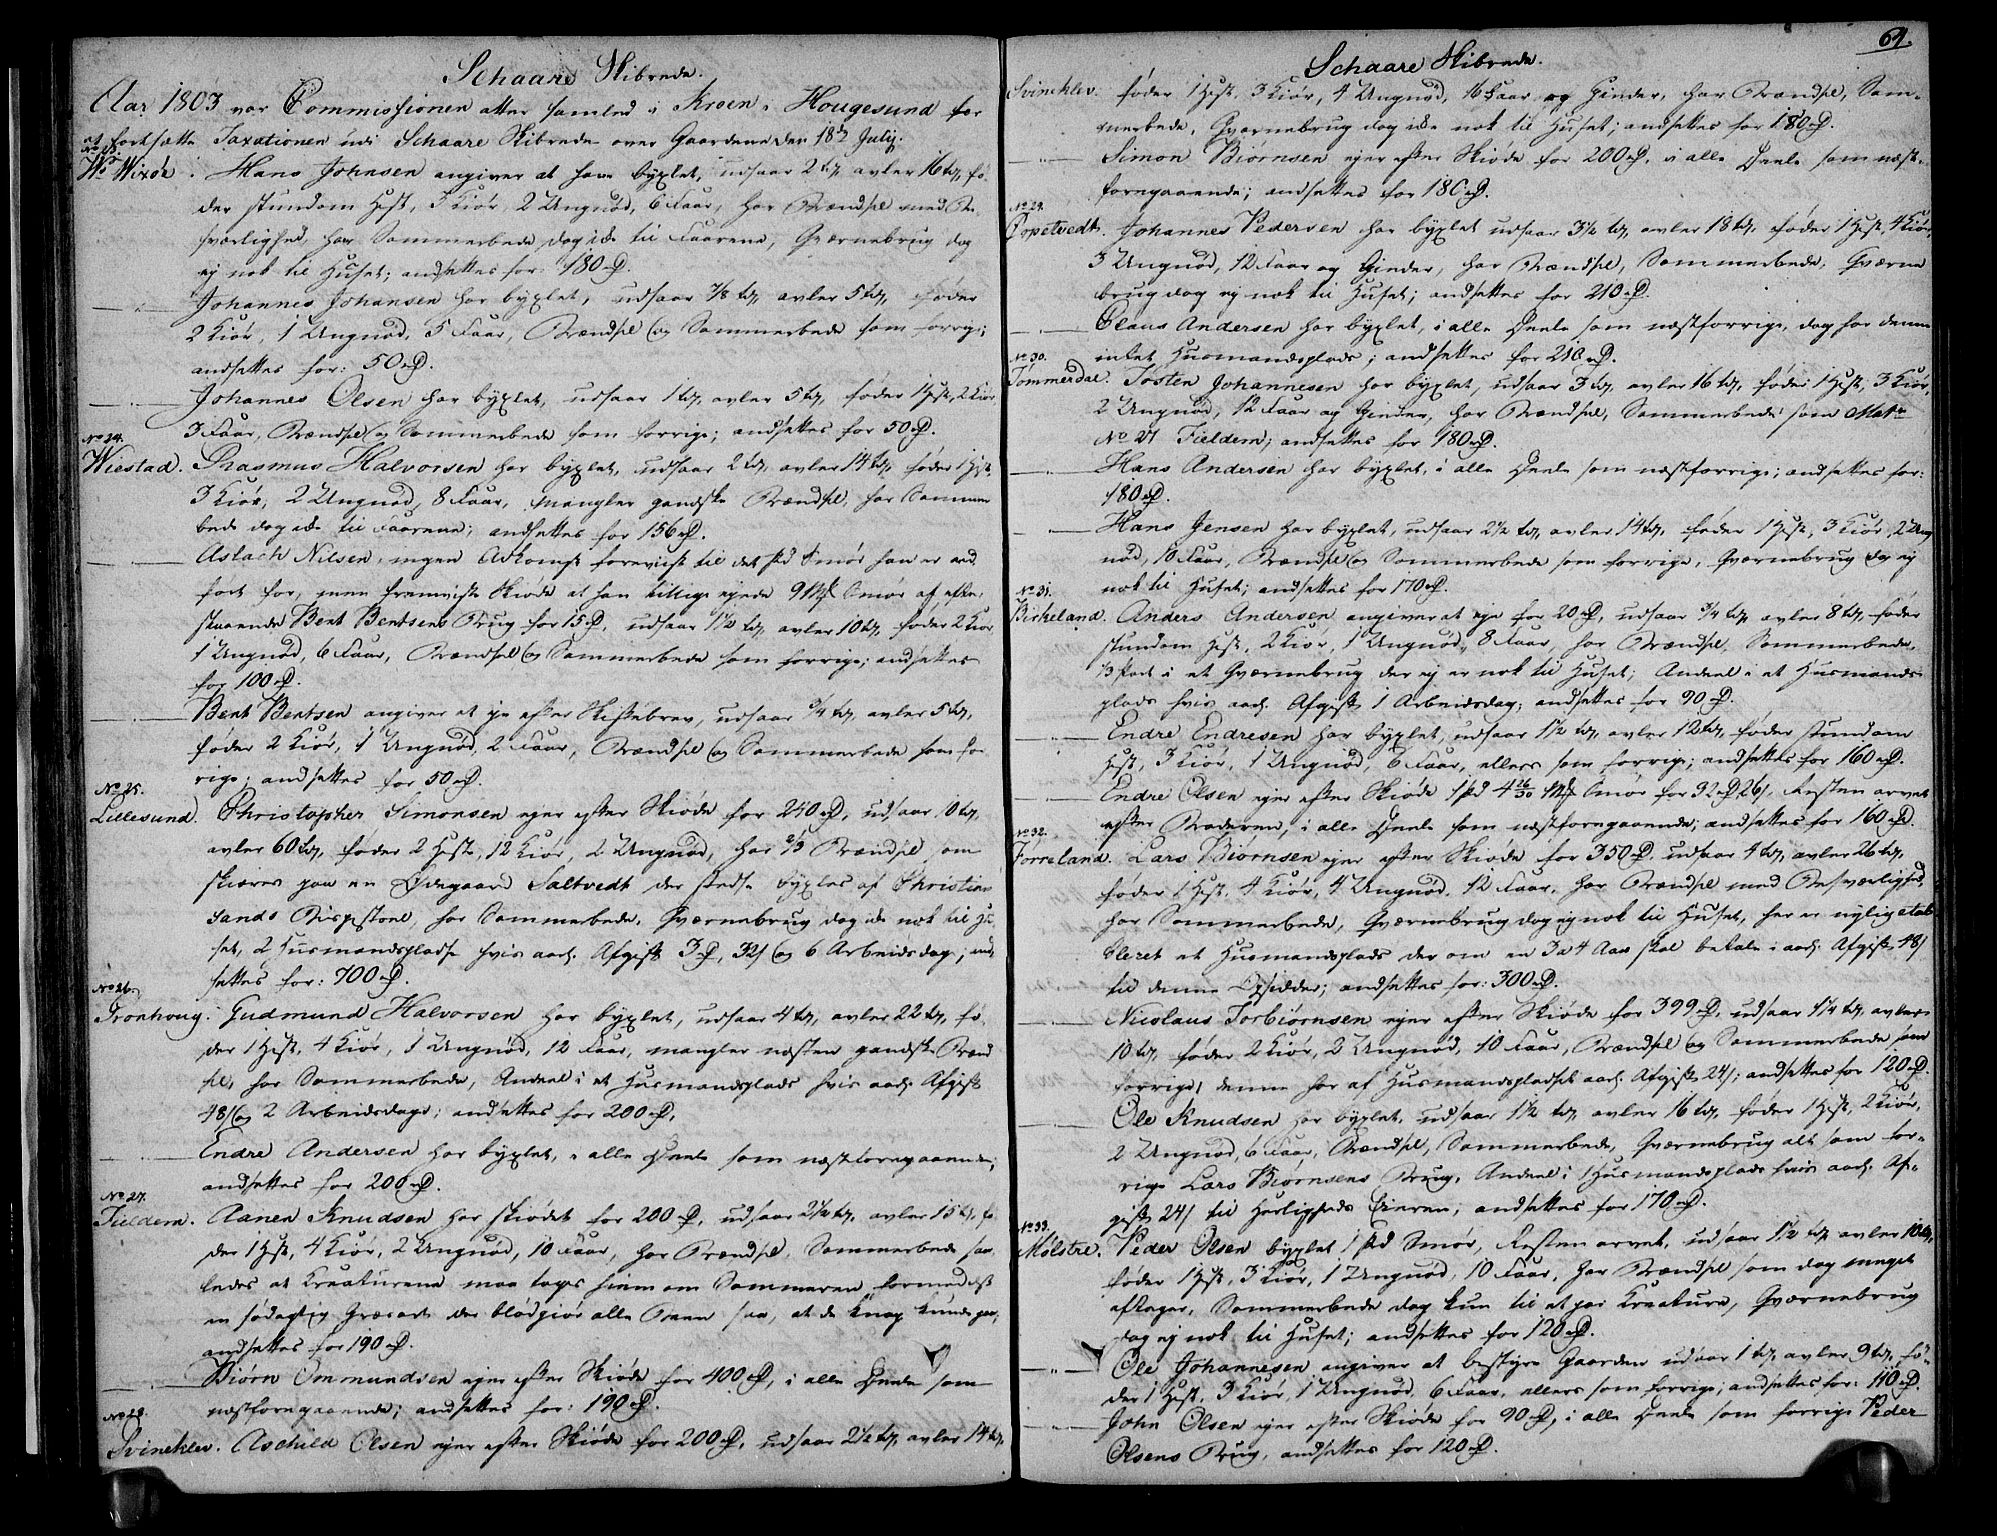 Schaare Skibrede.
Aar 1803 var Commissionen atter samled i Kroen i Hougesund for
at fortsætte Taxationen udi Schaare Skibrede over Gaardene den 18de July.
Wixøe. Hans Johnsen angiver at have byxlet, udsaar 2 td, avler 16 td, fø-
der stundom Hest, 3 Kiør, 2 Ungnød, 6 Faar, har Brændsel med Be-
sværlighed, har Sommerbede dog ikke til Faarene, Qværnebrug dog
ej nok til Huset; andsettes for: 180 rd.
Johannes Johansen har byxlet, udsaar 7/8 td, avler 5 td, føder
2 Kiør, 1 Ungnød, 5 Faar, Brændsel og Sommerbede som forrige;
andsettes for: 50 rd.
Johannes Olsen har byxlet, udsaar 1 td, avler 5 td, føder 1 Hest, 2 Kiør
3 Faar, Brændsel og Sommerbede som forrige; andsettes for 50 rd.
No 24.
Wiestad. Rasmus Halvorsen har byxlet, udsaar 2 td, avler 14 td, føder 1 Hest,
3 Kiør, 2 Ungnød, 8 Faar, mangler gandske Brændsel, har Sommer-
bede dog ikke til Faarene; andsettes for 156 rd.
Aslach Nilsen, ingen Adkomst foreviist til det Spd Smør han er and-
ført for, men fremviste Skiøde at han tillige ejede 9 Mk Smør af efter-
staaende Bent Bentsens Brug for 15 rd, udsaar 1 1/2 td, avler 10 td, føder 2 Kiør
1 Ungnød, 6 Faar, Brændsel og Sommerbede som forrige; andsettes
for 100 rd.
Bent Bentsen angiver at eje efter Skiftebrev, udsaar 3/4 td, avler 5 td,
føder 2 Kiør, 1 Ungnød, 2 Faar, Brændsel og Sommerbede som for-
rige; andsettes for 50 rd.
No 25.
Lillesund. Christopher Simonsen ejer efter Skiøde for 240 rd, udsaar 10 td,
avler 60 td, føder 2 Heste, 12 Kiør, 2 Ungnød, har 2/3 Brændsel, om
skiæres paa en Ødegaard Saltvedt der stedse byxles af Christian-
sands Bispestoel, har Sommerbede, Qværnebrug dog ikke nok til Hu-
set, 2 Husmandspladse hvis aarl. Afgift 3 rd, 32 s og 6 Arbeidsdage, and-
settes for: 700 rd.
No 26.
Tronhoug. Gudmund Halvorsen har byxlet, udsaar 4 td, avler 22 td, fø-
der 1 Hest, 4 Kiør, 1 Ungnød, 12 Faar, mangler næsten gandske Brænd-
sel, har Sommerbede, Andeel i et Husmandsplads hvis aarl. Afgift
48 s og 2 Arbeidsdage; andsettes for 200 rd,
Endre Andersen har byxlet, i alle Deele som næstforegaaende;
andsettes for 200 rd.
No 27.
Fieldem. Aanen Knudsen har skiødet for 200 rd, udsaar 2 1/4 td, avler 15 td, fø-
der 1 Hest, 4 Kiør, 2 Ungnød, 10 Faar, har Brændsel, Sommerbede saa-
ledes at Kreaturene maa tages hiem om Sommeren formedelst
en sødagtig Græsart der blødgiør alle Been saa, at de knap kunde gaa,
andsettes for 190 rd.
Biørn Ommundsen ejer efter Skiøde for 400 rd, i alle Deele som
næstforegaaende; andsettes for: 190 rd.
No 28.
Svinehlev. Aschild Olsen ejer efter Skiøde for 200 rd, udsaar 2 1/2 td, avler 14 td,
64.
Schaare Skibrede.
Svinehlev. føder 1 Hest, 3 Kiør, 4 Ungnød, 16 Faar og Gieder, har Brændsel, Som-
merbede, Qværnebrug dog ikke nok til Huset; andsettes for 180 rd.
Simon Biørnsen ejer efter Skiøde for 200 rd, i alle Deele som næst-
foregaaende; andsettes for 180 rd.
No 29.
Johannes Pedersen har byxlet udsaar 3 1/2 td, avler 18 td, føder 1 Hest, 4 Kiør,
3 Ungnød, 12 Faar og Gieder, har Brændsel, Sommerbede, Qværne-
brug dog ej nok til Huset; andsettes for 210 rd.
Claus Andersen har byxlet, i alle Deele som næstforrige, dog har denne
intet Husmandsplads; andsettes for 210 rd.
No 30.
Tømmerdal. Tosten Johannesen har byxlet, udsaar 3 td, avler 16 td, føder 1 Hest, 3 Kiør,
2 Ungnød, 12 Faar og Gieder, har Brændsel, Sommerbede som Matr
No 27 Fieldem; andsettes for 180 rd.
Hans Andersen har byxlet, i alle Deele som næstforrige; andsettes for:
180 rd.
Hans Jensen har byxlet, udsaar 2 1/2 td, avler 14 td, føder 1 Hest, 3 Kiør, 2 Ung-
nød, 10 Faar, Brændsel og Sommerbede som forrige, Qværnebrug dog ej
nok til Huset; andsettes for 170 rd.
No 31.
Birkeland. Anders Andersen angiver at eje for 20 rd, udsaar 3/4 td, avler 8 td, føder
stundom Hest, 2 Kiør, 1 Ungnød, 8 Faar, har Brændsel, Sommerbede,
1/3 Part i et Qværnebrug der ej er nok til Huset; Andeel i et Husmands-
plads hvis aarl. Afgift 1 Arbeidsdag; andsettes for 90 rd.
Endre Endresen har byxlet, udsaar 1 1/2 td, avler 12 td, føder stundom
Hest, 3 Kiør, 1 Ungnød, 6 Faar, ellers som forrige; andsettes for 160 rd.
Endre Olsen ejer efter Skiøde 1 Spd 4 26/30 Mk Smør for 32 rd 26 s, Resten arvet
efter Broderen, i alle Deele som næstforegaaende; andsettes for 160 rd.
No 32.
Torreland. Lars Biørnsen ejer efter Skiøde for 350 rd. udsaar 4 td, avler 26 td,
føder 1 Hest, 4 Kiør, 4 Ungnød, 12 Faar, har Brændsel med Besværlighed,
har Sommerbede, Qværnebrug dog ej nok til Huset, her er nylig etab-
bleret et Husmandsplads der om en 3 a 4 Aar skal betale i aarl. Afgift 48 s
til denne Opsidder; andsettes for: 300 rd.
Nicolaus Torbiørnsen ejer efter Skiøde for 399 rd, udsaar 1 1/4 td, avler
10 td, føder 2 Kiør, 2 Ungnød, 10 Faar, Brændsel og Sommerbede som
forrige, denne har af Husmandspladset aarl. Afgift 24 s; andsettes for 120 rd.
Ole Knudsen har byxlet, udsaar 1 1/2 td, avler 16 td, føder 1 Hest, 2 Kiør,
2 Ungnød, 6 Faar, Brændsel, Sommerbede, Qværnebrug alt som for-
rige Lars Biørnsens Brug, Andeel i 1 Husmandsplads hvis aarl. Af-
gift 24 s til Herligheds Eieren; andsettes for 170 rd.
No 33.
Mølstre. Peder Olsen byxlet 1 Spd Smør, Resten arvet, udsaar 1 1/2 td, avler 10 td,
føder 1 Hest, 3 Kiør, 1 Ungnød, 10 Faar, har Brændsel som dog meget
aftager, Sommerbede dog kun til et par Kreature, Qværnebrug
dog ej nok til Huset; andsettes for 120 rd.
Ole Johannesen angiver at bestyre Gaarden udsaar 1 td, avler 9 td, fø-
der 1 Hest, 3 Kiør, 1 Ungnød, 6 Faar, ellers som forrige; andsettes for: 110 rd.
John Olsen ejer efter Skiøde for 90 rd, i alle Deele som forrige Peder
Olsens Brug, andsettes for 120 rd.